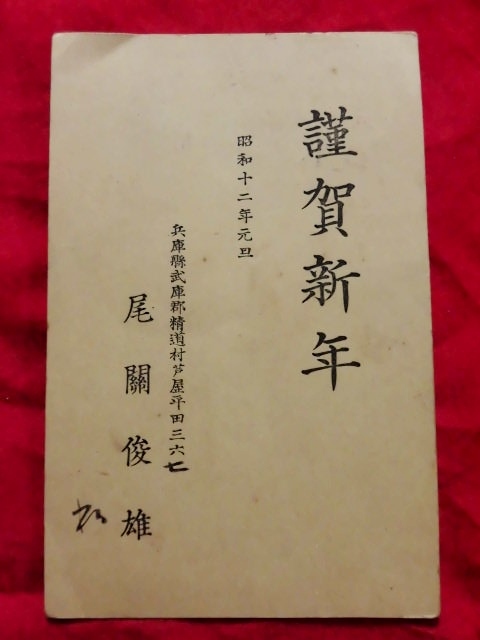 謹賀新年
昭和十二年元旦
兵庫縣武庫郡精道村芦屋平田三六七
尾關俊雄